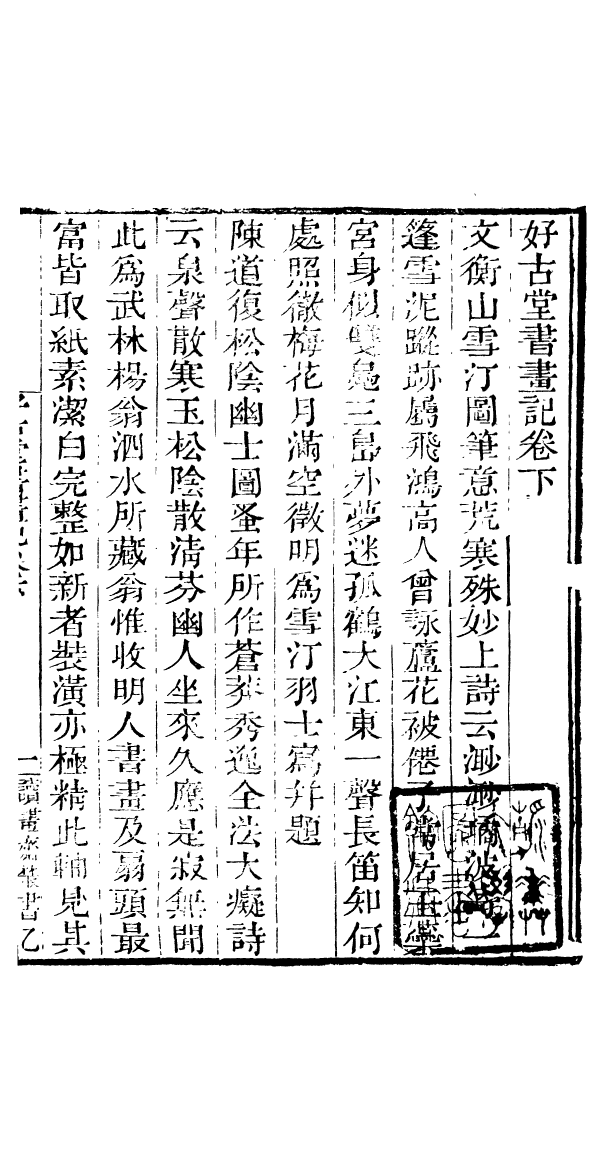 好古堂書畫記卷下
文衡山雪汀圖筆意荒寒殊妙上詩云渺渺
篷雪泥蹤跡屬飛鴻高人曾詠蘆花被僊子常居玉蘂
宮身似雙鳧三島外夢迷孤鶴大江東一聲長笛知何
處照徹梅花月滿空徵明爲雪汀羽士寫幷題
陳道復松陰幽士圖蚤年所作蒼莽秀逸全法大癡詩
云泉聲散寒玉松陰散淸芬幽人坐來久應是寂無聞
此爲武林楊翁泗水所藏翁惟收明人書畫及扇頭最
富皆取紙素潔白完整如新者裝潢亦極精此軸見其
讀畫齋叢書乙